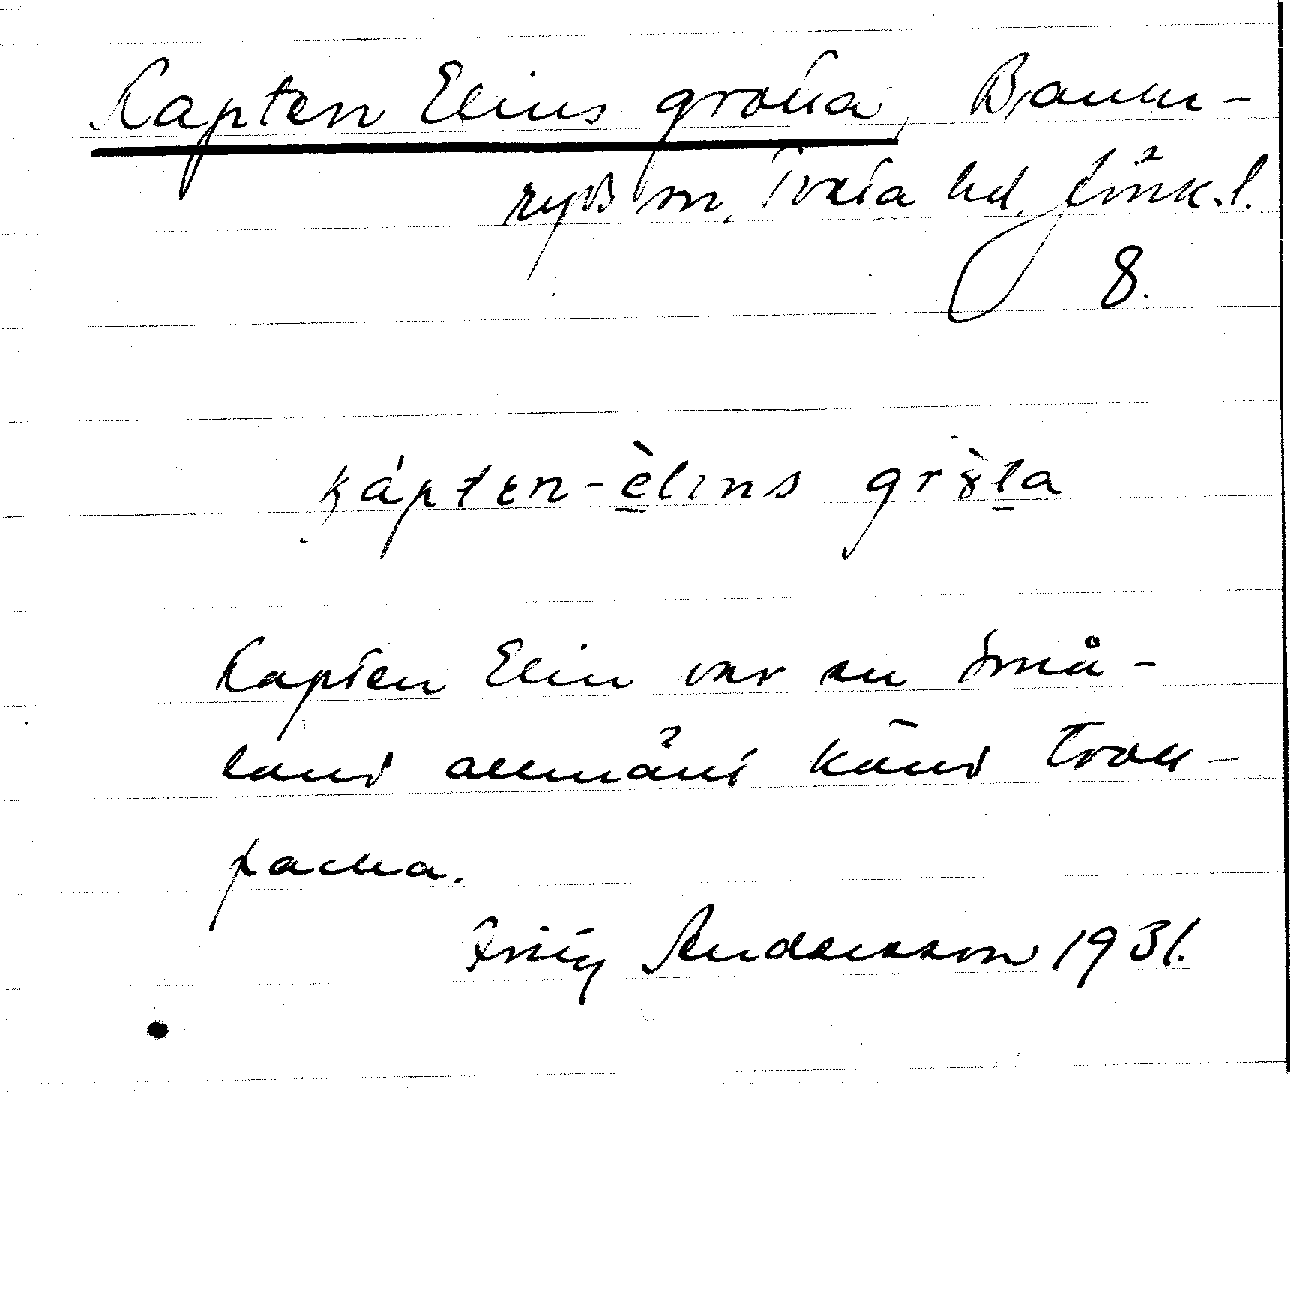 Kapten Elins grotta, Bann-
ryd sn, Tveta hd, Jönk. l.
8.
kápten-èlins gròta
Kapten Elin var en små-
ländsk allmänt känd troll-
packa.
Fritz Andersson 1931.